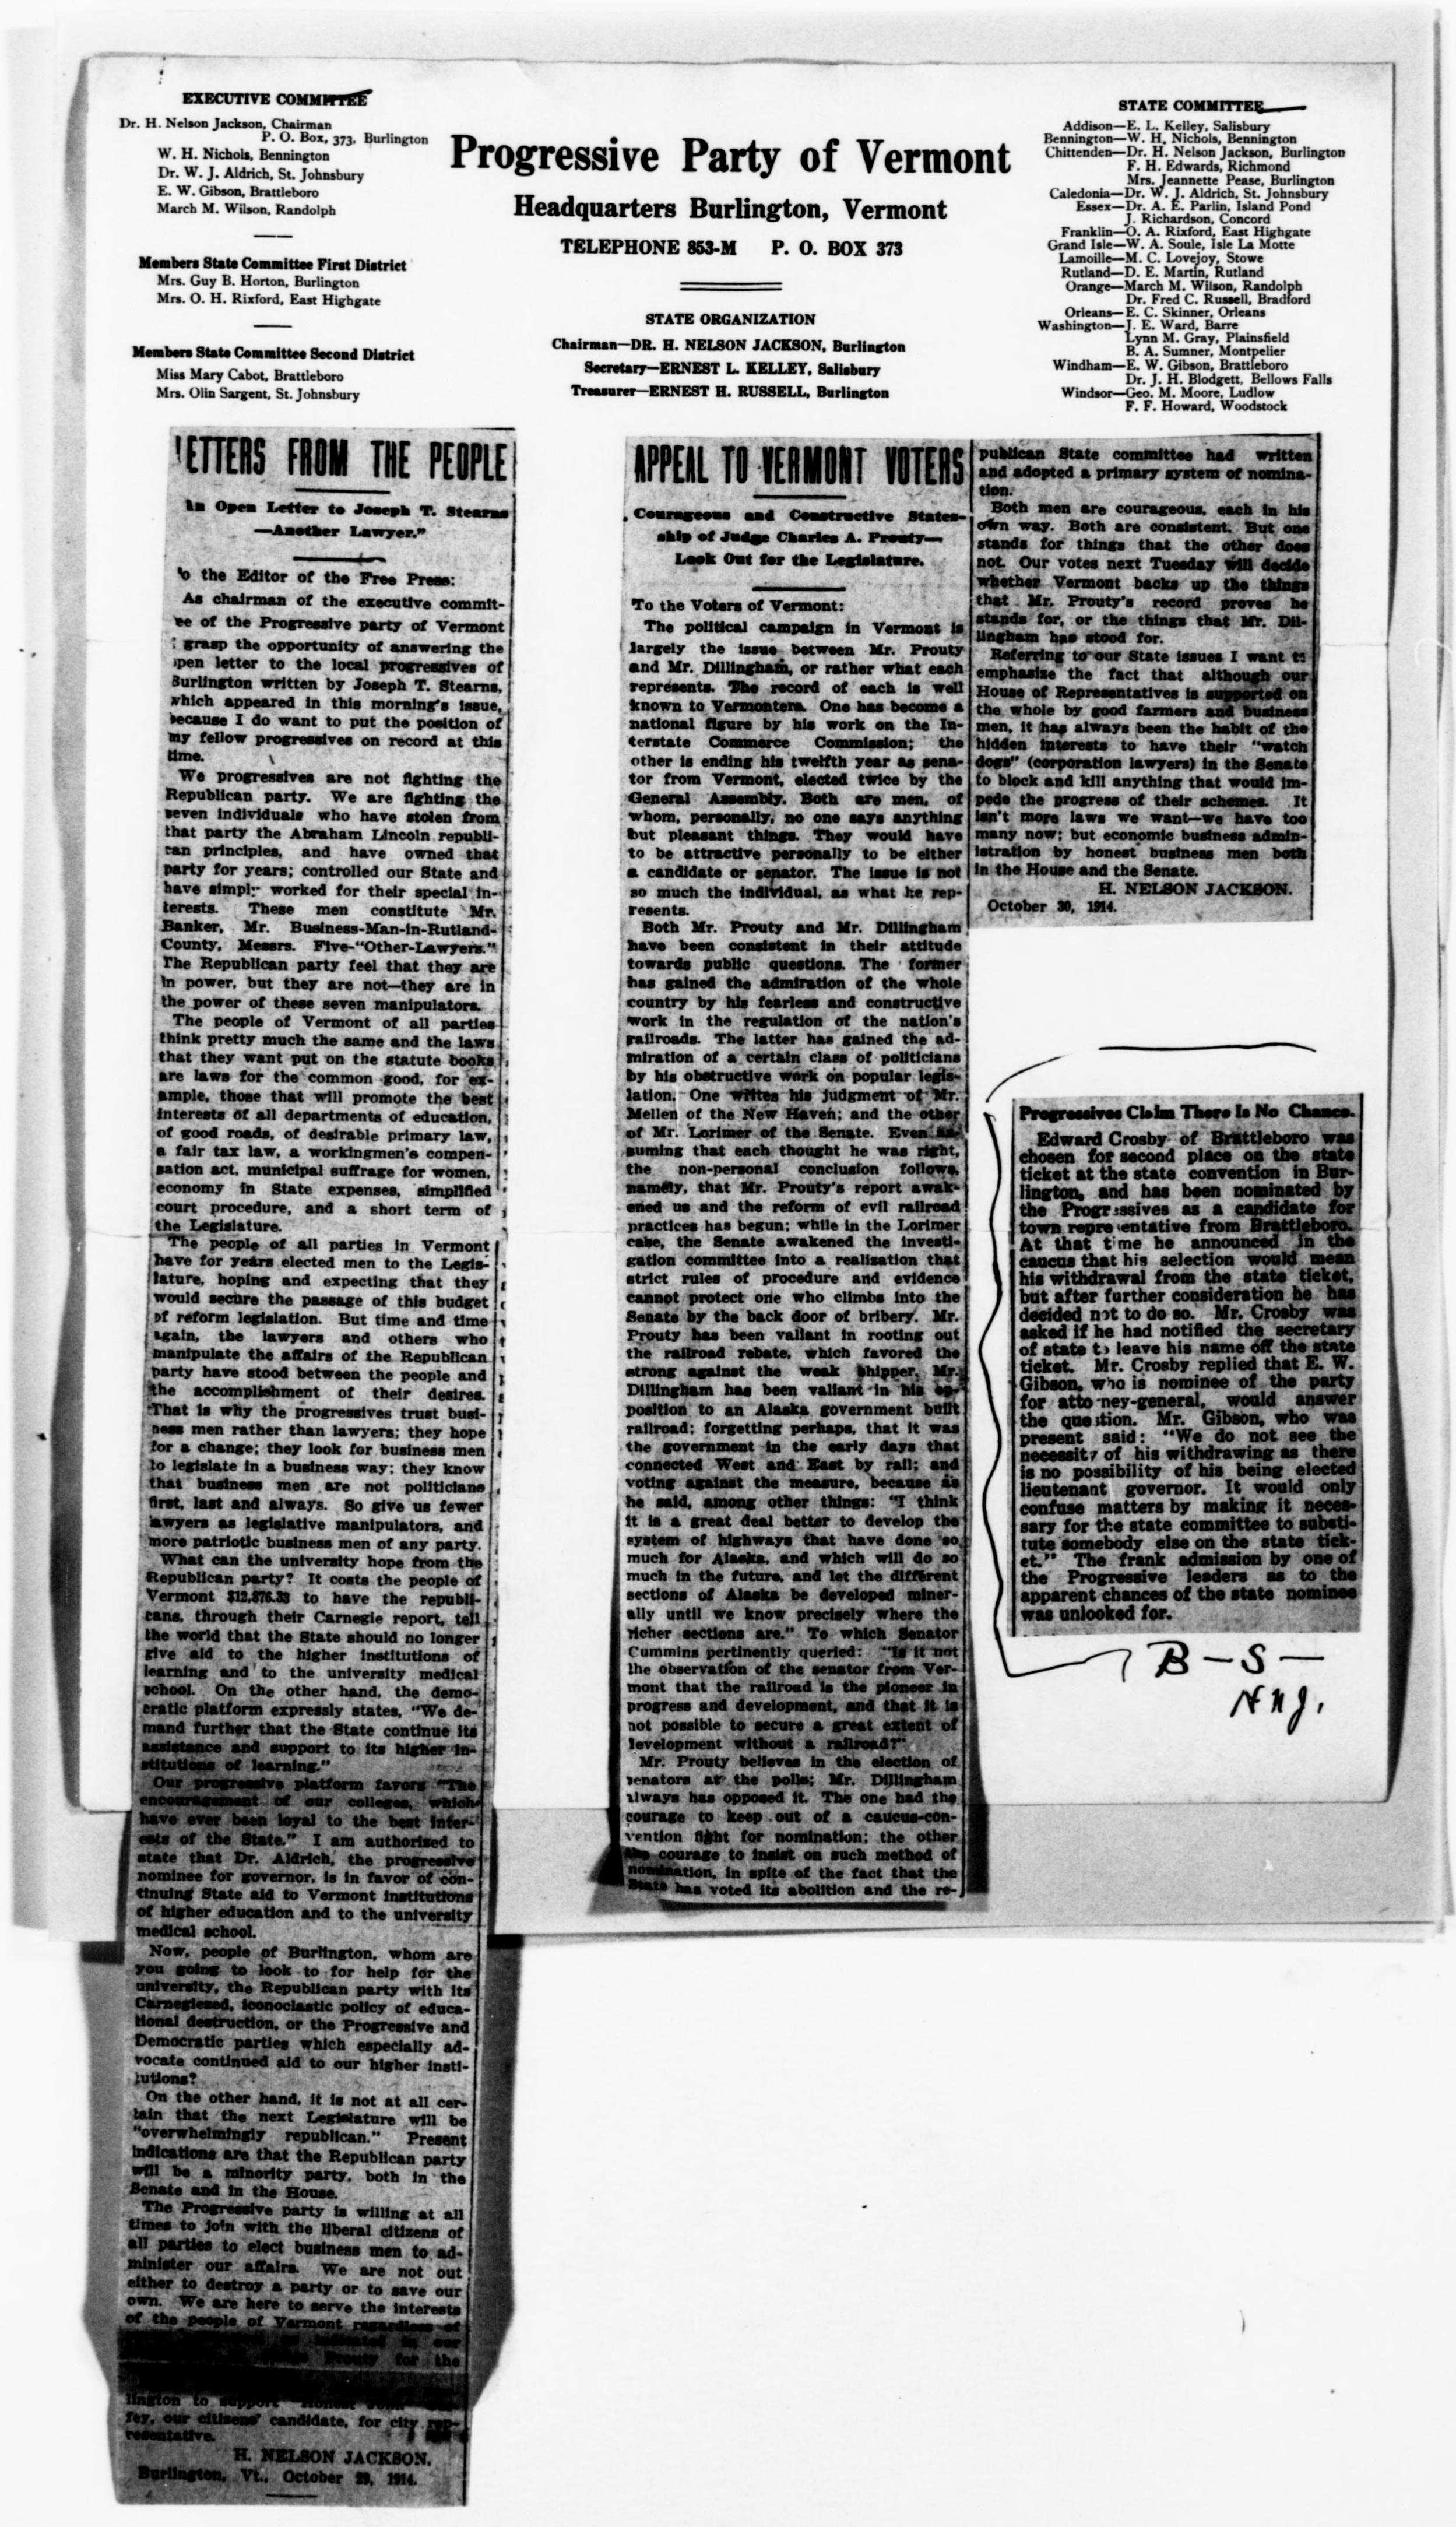 EXECUTIVE COMMITTEE
Dr. H. Nelson Jackson, Chairman
P. O. Box, 373, Burlington
W. H. Nichols, Bennington
Dr. W. J. Aldrich, St. Johnsbury
E. W. Gibson, Brattleboro
March M. Wilson, Randolph
Members State Committee First District
Mrs. Guy B. Horton, Burlington
Mrs. O. H. Rixford, East Highgate
Members State Committee Second District
Miss Mary Cabot, Brattleboro
Mrs. Olin Sargent, St. Johnsbury
Progressive Party of Vermont
Headquarters Burlington, Vermont
TELEPHONE 853-M P. O. BOX 373
STATE ORGANIZATION
Chairman—DR. H. NELSON JACKSON, Burlington
Secretary—ERNEST L. KELLEY, Salisbury
Treasurer—ERNEST H. RUSSELL, Burlington
STATE COMMITTEE
Addison—E. L. Kelley, Salisbury
Bennington—W. H. Nichols, Bennington
Chittenden—Dr. H. Nelson Jackson, Burlington
F. H. Edwards, Richmond
Mrs. Jeannette Pease, Burlington
Caledonia—Dr. W. J. Aldrich, St. Johnsbury
Essex—Dr. A. E. Parlin, Island Pond
J. Richardson, Concord
Franklin—O. A. Rixford, East Highgate
Grand Isle—W. A. Soule, Isle La Motte
Lamoille—M. C. Lovejoy, Stowe
Rutland—D. E. Martin, Rutland
Orange—March M. Wilson, Randolph
Dr. Fred C. Russell, Bradford
Orleans—E. C. Skinner, Orleans
Washington—J. E. Ward, Barre
Lynn M. Gray, Plainsfield
B. A. Sumner, Montpelier
Windham—E. W. Gibson, Brattleboro
Dr. J. H. Blodgett, Bellows Falls
Windsor—Geo. M. Moore, Ludlow
F. F. Howard, Woodstock
LETTERS FROM THE PEOPLE
An Open Letter to Joseph T. Stearns
—Another Lawyer."
To the Editor of the Free Press:
As chairman of the executive commit-
tee of the Progressive party of Vermont
I grasp the opportunity of answering the
open letter to the local progressives of
Burlington written by Joseph T. Stearns,
which appeared in this morning's issue,
because I do want to put the position of
my fellow progressives on record at this
time.
We progressives are not fighting the
Republican party. We are fighting the
seven individuals who have stolen from
that party the Abraham Lincoln republi-
can principles, and have owned that
party for years; controlled our State and
have simply worked for their special in-
terests. These men constitute Mr.
Banker, Mr. Business-Man-in-Rutland-
County, Messrs. Five-"Other-Lawyers."
The Republican party feel that they are
in power, but they are not—they are in
the power of these seven manipulators.
The people of Vermont of all parties
think pretty much the same and the laws
that they want put on the statute books
are laws for the common good, for ex-
ample, those that will promote the best
interests of all departments of education,
of good roads, of desirable primary law,
a fair tax law, a workingmen's compen-
sation act, municipal suffrage for women,
economy in State expenses, simplified
court procedure, and a short term of
the Legislature.
The people of all parties in Vermont
have for years elected men to the Legis-
lature, hoping and expecting that they
would secure the passage of this budget
of reform legislation. But time and time
again, the lawyers and others who
manipulate the affairs of the Republican
party have stood between the people and
the accomplishment of their desires.
That is why the progressives trust busi-
ness men rather than lawyers; they hope
for a change; they look for business men
to legislate in a business way; they know
that business men are not politicians
first, last and always. So give us fewer
lawyers as legislative manipulators, and
more patriotic business men of any party.
What can the university hope from the
Republican party? It costs the people of
Vermont $12,876.33 to have the republi-
cans, through their Carnegie report, tell
the world that the State should no longer
give aid to the higher institutions of
learning and to the university medical
school. On the other hand, the demo-
cratic platform expressly states, "We de-
mand further that the State continue its
assistance and support to its higher in-
stitutions of learning."
Our progressive platform favors "The
encouragement of our colleges, which
have ever been loyal to the best inter-
ests of the State." I am authorized to
state that Dr. Aldrich, the progressive
nominee for governor, is in favor of con-
tinuing State aid to Vermont institutions
of higher education and to the university
medical school.
Now, people of Burlington, whom are
you going to look to for help for the
university, the Republican party with its
Carnegiezed, iconoclastic policy of educa-
tional destruction, or the Progressive and
Democratic parties which especially ad-
vocate continued aid to our higher insti-
tutions?
On the other hand, it is not at all cer-
tain that the next Legislature will be
"overwhelmingly republican." Present
indications are that the Republican party
will be a minority party, both in the
Senate and in the House.
The Progressive party is willing at all
times to join with the liberal citizens of
all parties to elect business men to ad-
minister our affairs. We are not out
either to destroy a party or to save our
own. We are here to serve the interests
of the people of Vermont regardless of
indicated in our
Prouty for the
lington to support "Honest John"
fey, our citizens' candidate, for city rep-
resentative.
H. NELSON JACKSON.
Burlington, Vt., October 29, 1914.
APPEAL TO VERMONT VOTERS
Courageous and Constructive States-
ship of Judge Charles A. Prouty—
Look Out for the Legislature.
To the Voters of Vermont:
The political campaign in Vermont is
largely the issue between Mr. Prouty
and Mr. Dillingham, or rather what each
represents. The record of each is well
known to Vermonters. One has become a
national figure by his work on the In-
terstate Commerce Commission; the
other is ending his twelfth year as sena-
tor from Vermont, elected twice by the
General Assembly. Both are men, of
whom, personally, no one says anything
but pleasant things. They would have
to be attractive personally to be either
a candidate or senator. The issue is not
so much the individual, as what he rep-
resents.
Both Mr. Prouty and Mr. Dillingham
have been consistent in their attitude
towards public questions. The former
has gained the admiration of the whole
country by his fearless and constructive
work in the regulation of the nation's
railroads. The latter has gained the ad-
miration of a certain class of politicians
by his obstructive work on popular legis-
lation. One writes his judgment of Mr.
Mellen of the New Haven; and the other
of Mr. Lorimer of the Senate. Even as-
suming that each thought he was right,
the non-personal conclusion follows,
namely, that Mr. Prouty's report awak-
ened us and the reform of evil railroad
practices has begun; while in the Lorimer
case, the Senate awakened the investi-
gation committee into a realization that
strict rules of procedure and evidence
cannot protect one who climbs into the
Senate by the back door of bribery. Mr.
Prouty has been valiant in rooting out
the railroad rebate, which favored the
strong against the weak shipper, Mr.
Dillingham has been valiant in his op-
position to an Alaska government built
railroad; forgetting perhaps, that it was
the government in the early days that
connected West and East by rail; and
voting against the measure, because as
he said, among other things: "I think
it is a great deal better to develop the
system of highways that have done so
much for Alaska, and which will do so
much in the future, and let the different
sections of Alaska be developed miner-
ally until we know precisely where the
richer sections are." To which Senator
Cummins pertinently queried: "Is it not
the observation of the senator from Ver-
mont that the railroad is the pioneer in
progress and development, and that it is
not possible to secure a great extent of
development without a railroad?"
Mr. Prouty believes in the election of
senators at the polls; Mr. Dillingham
always has opposed it. The one had the
courage to keep out of a caucus-con-
vention fight for nomination; the other
the courage to insist on such method of
nomination, in spite of the fact that the
State has voted its abolition and the re-
publican State committee had written
and adopted a primary system of nomina-
tion.
Both men are courageous, each in his
own way. Both are consistent. But one
stands for things that the other does
not. Our votes next Tuesday will decide
whether Vermont backs up the things
that Mr. Prouty's record proves he
stands for, or the things that Mr. Dil-
lingham has stood for.
Referring to our State issues I want to
emphasize the fact that although our
House of Representatives is supported on
the whole by good farmers and business
men, it has always been the habit of the
hidden interests to have their "watch
dogs" (corporation lawyers) in the Senate
to block and kill anything that would im-
pede the progress of their schemes. It
isn't more laws we want—we have too
many now; but economic business admin-
istration by honest business men both
in the House and the Senate.
H. NELSON JACKSON.
October 30, 1914.
Progressives Claim There Is No Chance.
Edward Crosby of Brattleboro was
chosen for second place on the state
ticket at the state convention in Bur-
lington, and has been nominated by
the Progressives as a candidate for
town representative from Brattleboro.
At that time he announced in the
caucus that his selection would mean
his withdrawal from the state ticket,
but after further consideration he has
decided not to do so. Mr. Crosby was
asked if he had notified the secretary
of state to leave his name off the state
ticket. Mr. Crosby replied that E. W.
Gibson, who is nominee of the party
for attorney-general, would answer
the question. Mr. Gibson, who was
present said: "We do not see the
necessity of his withdrawing as there
is no possibility of his being elected
lieutenant governor. It would only
confuse matters by making it neces-
sary for the state committee to substi-
tute somebody else on the state tick-
et." The frank admission by one of
the Progressive leaders as to the
apparent chances of the state nominee
was unlooked for.
B—S—
HNJ.